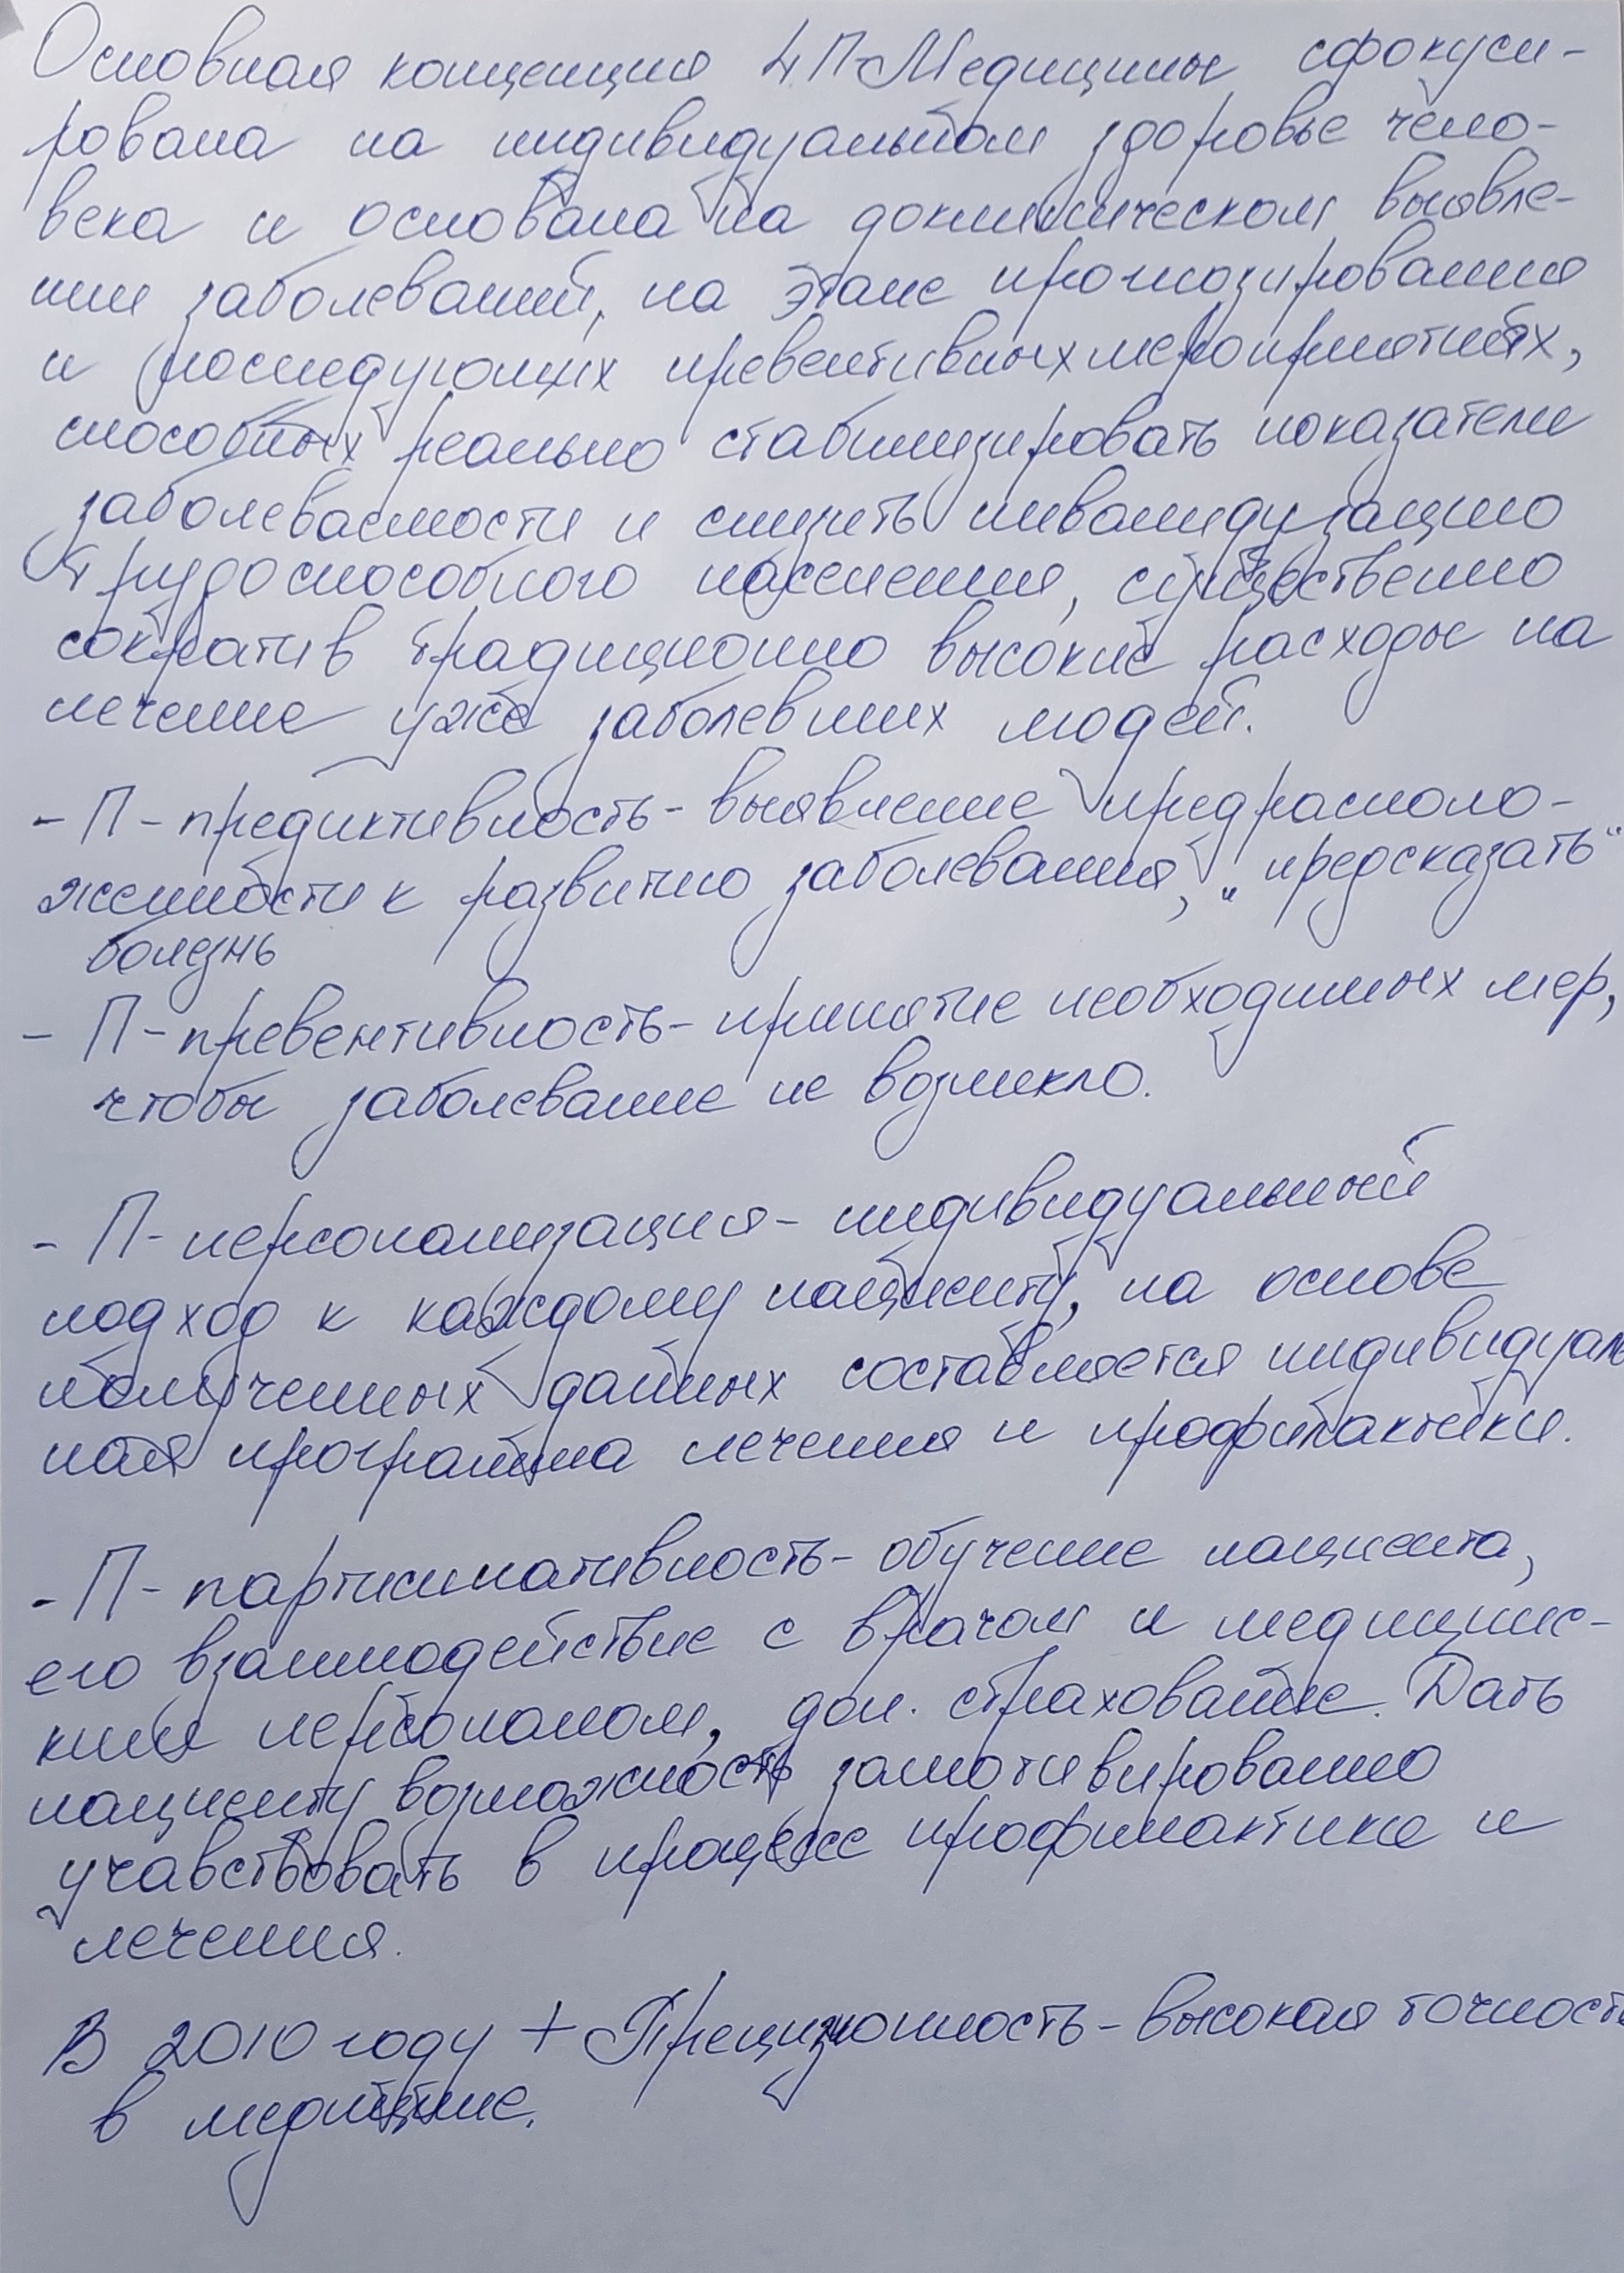 Основная концепция 4П-Медицины сфокуси-
рована на индивидуальном здоровье чело-
века и основана на доклиническом выявле-
нии заболеваний, на этапе прогнозирования
и последующих превентивных мероприятиях,
способных реально стабилизировать показатели
заболеваемости и снизить инвалидизацию
трудоспособного населения, существенно
сократив традиционно высокие расходы на
лечение уже заболевших людей.
- П - предиктивность - выявление предрасполо-
женности к развитию заболевания, „предсказать“
болезнь
- П - превентивность - принятие необходимых мер,
чтобы заболевание не возникло.
- П - персонализация - индивидуальный
подход к каждому пациенту, на основе
полученных данных составляется индивидуаль
ная программа лечения и профилактики.
- П - партисипативность - обучение пациента,
его взаимодействие с врачом и медицинс-
ким персоналом, доп. страхование. Дать
пациенту возможность замотивированно
учавствовать в процессе профилактики и
лечения.
В 2010 году + Прецизионность - высокая точность
в медицине.